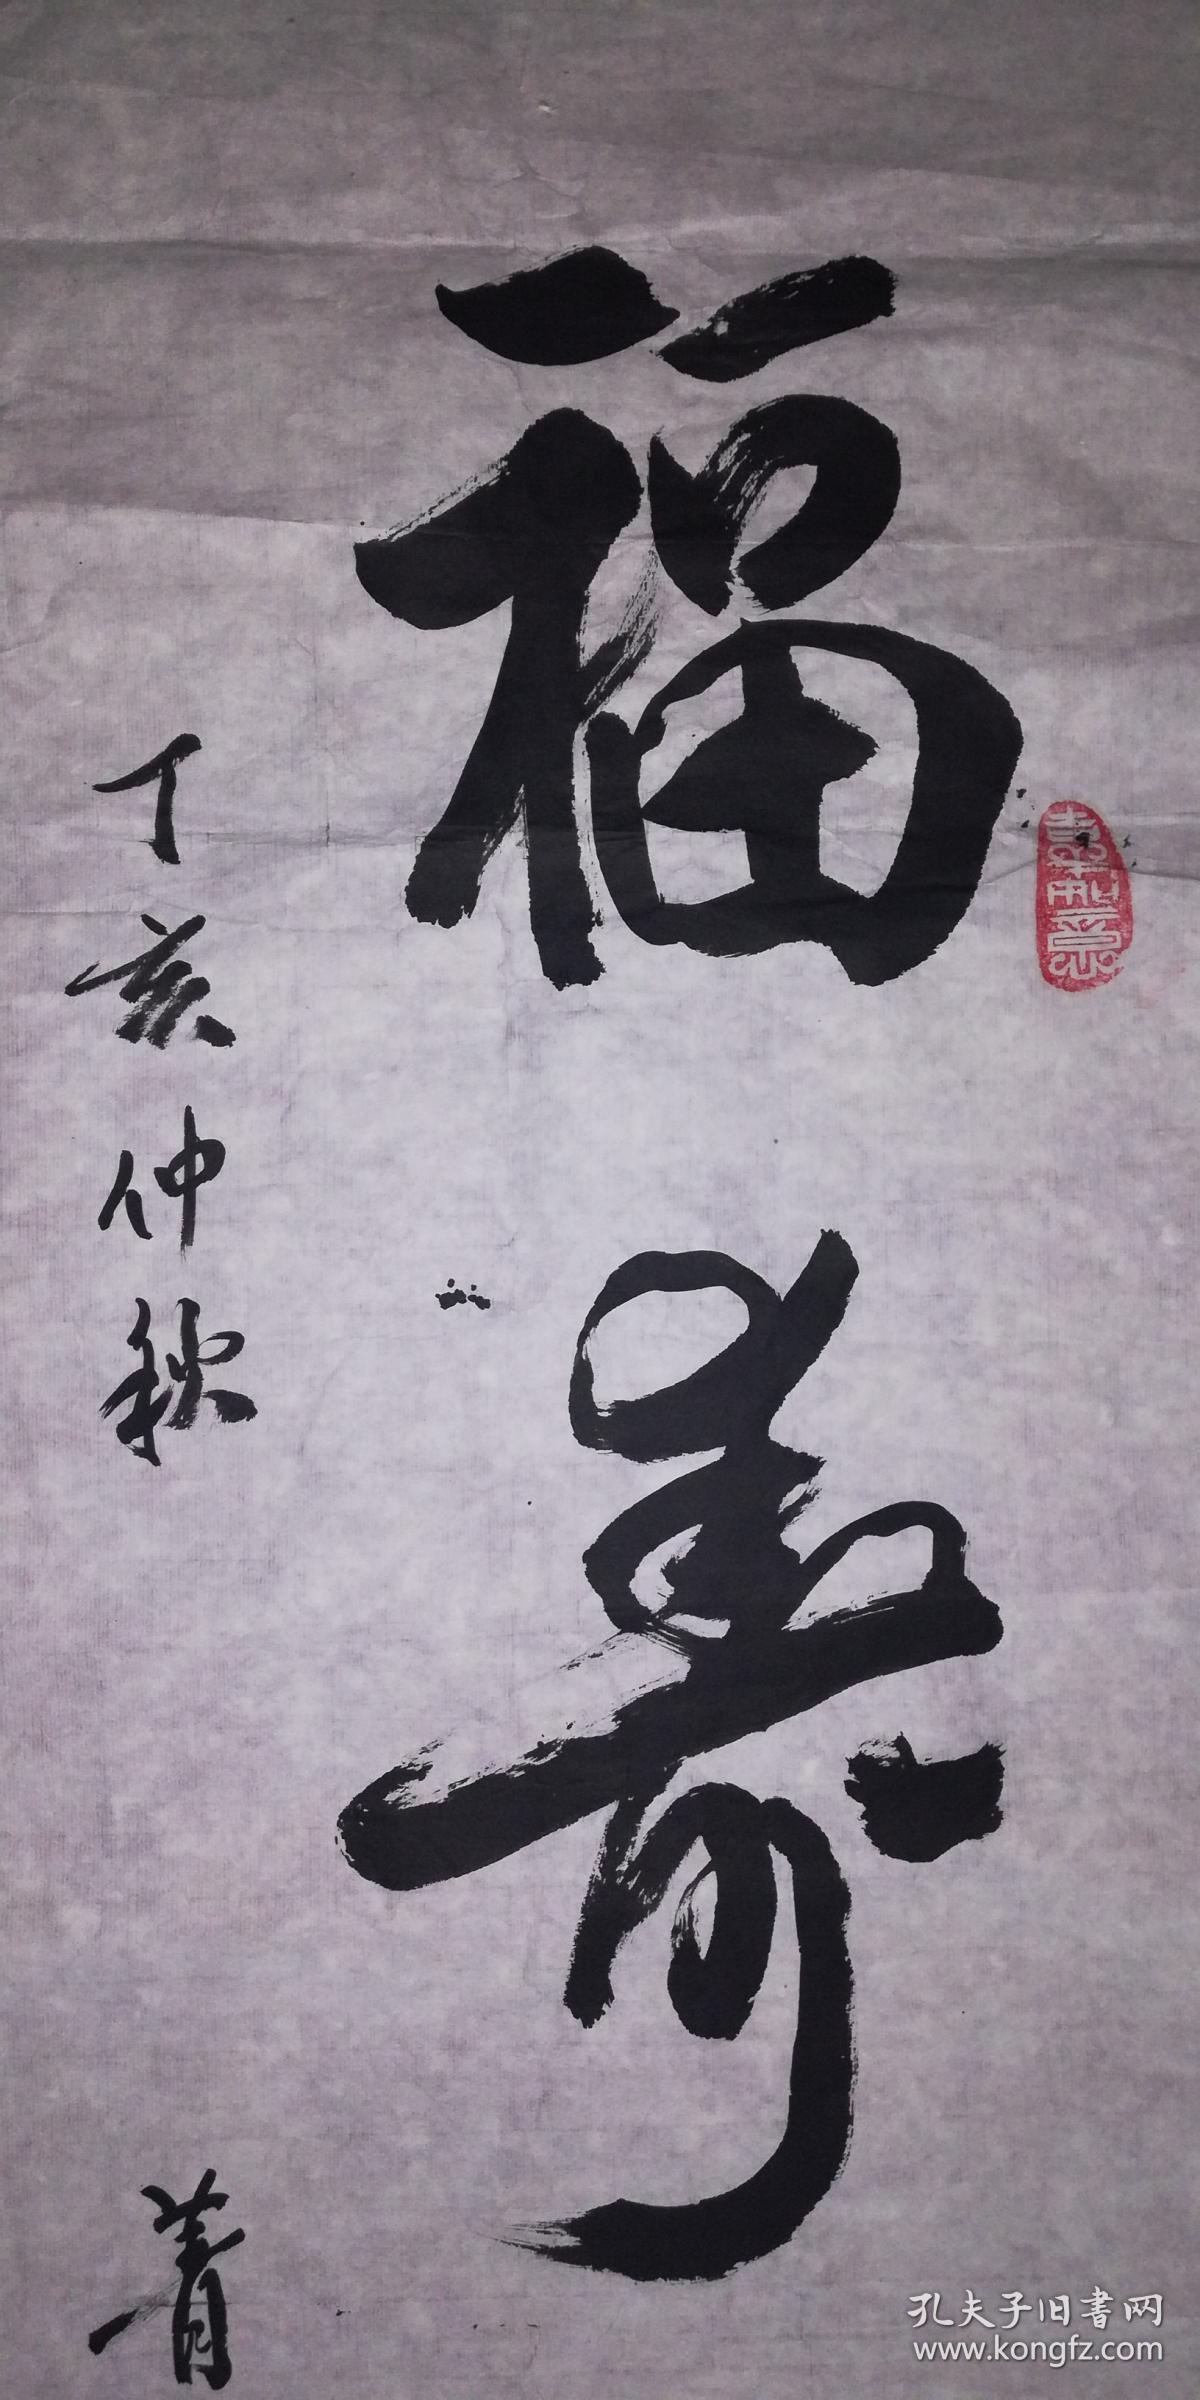 福寿
丁亥仲秋
菁
孔夫子旧书网
www.kongfz.com